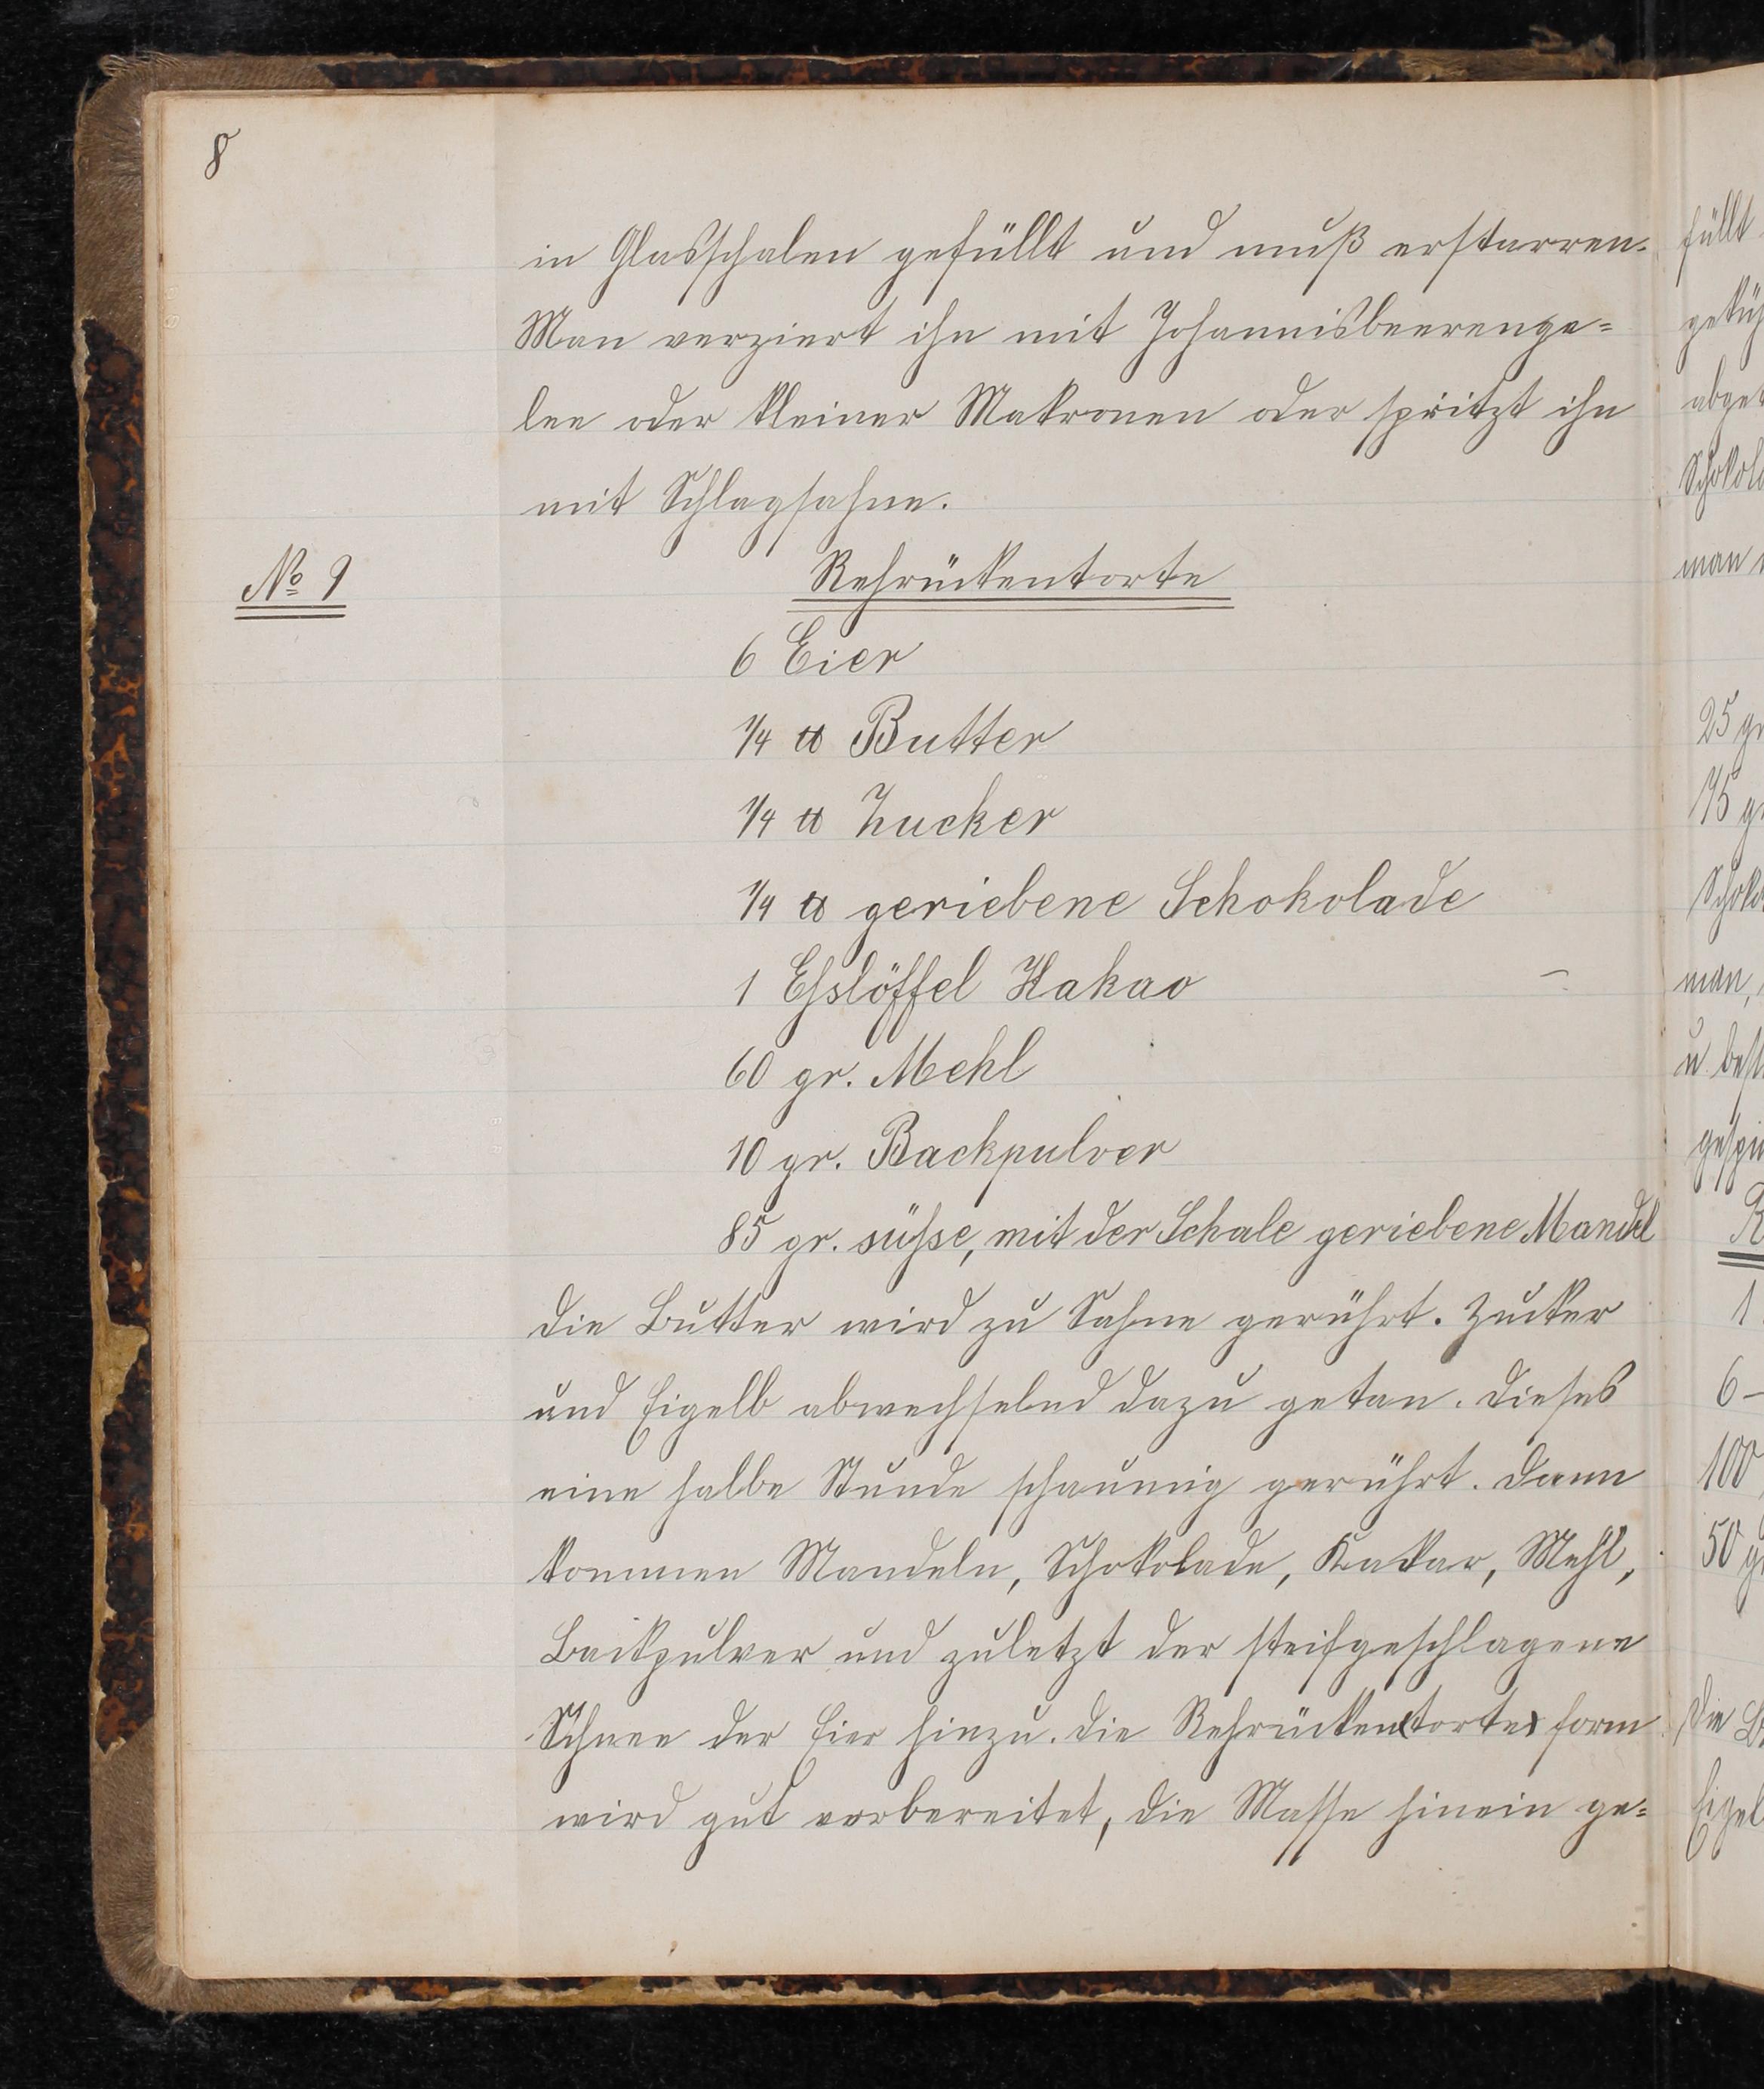 8
in Glasschalen gefüllt und muß erstarren.
Man verziert ihn mit Johannisbeerenge=
lee oder kleiner Makronen oder spritzt ihn
mit Schlagsahne.
No 9
Rehrückentorte
6 Eier
1/4 ℔ Butter
1/4 ℔ Zucker
1/4 ℔ geriebene Schokolade
1 Esslöffel Kakao
60 gr. Mehl
10 gr. Backpulver
85 gr. süsse, mit der Schale geriebene Mandel
Die Butter wird zu Sahne gerührt. Zucker
und Eigelb abwechselnd dazu getan. Dieses
eine halbe Stunde schaumig gerührt. Dann
kommen Mandeln, Schokolade, Kakao, Mehl,
Backpulver und zuletzt der steifgeschlagene
Schnee der Eier hinzu. Die Rehrückentorte form
wird gut vorbereitet, die Masse hinein ge=
füllt
man
25 gr
75 g
man,
1
6 –
100
50 g
Die